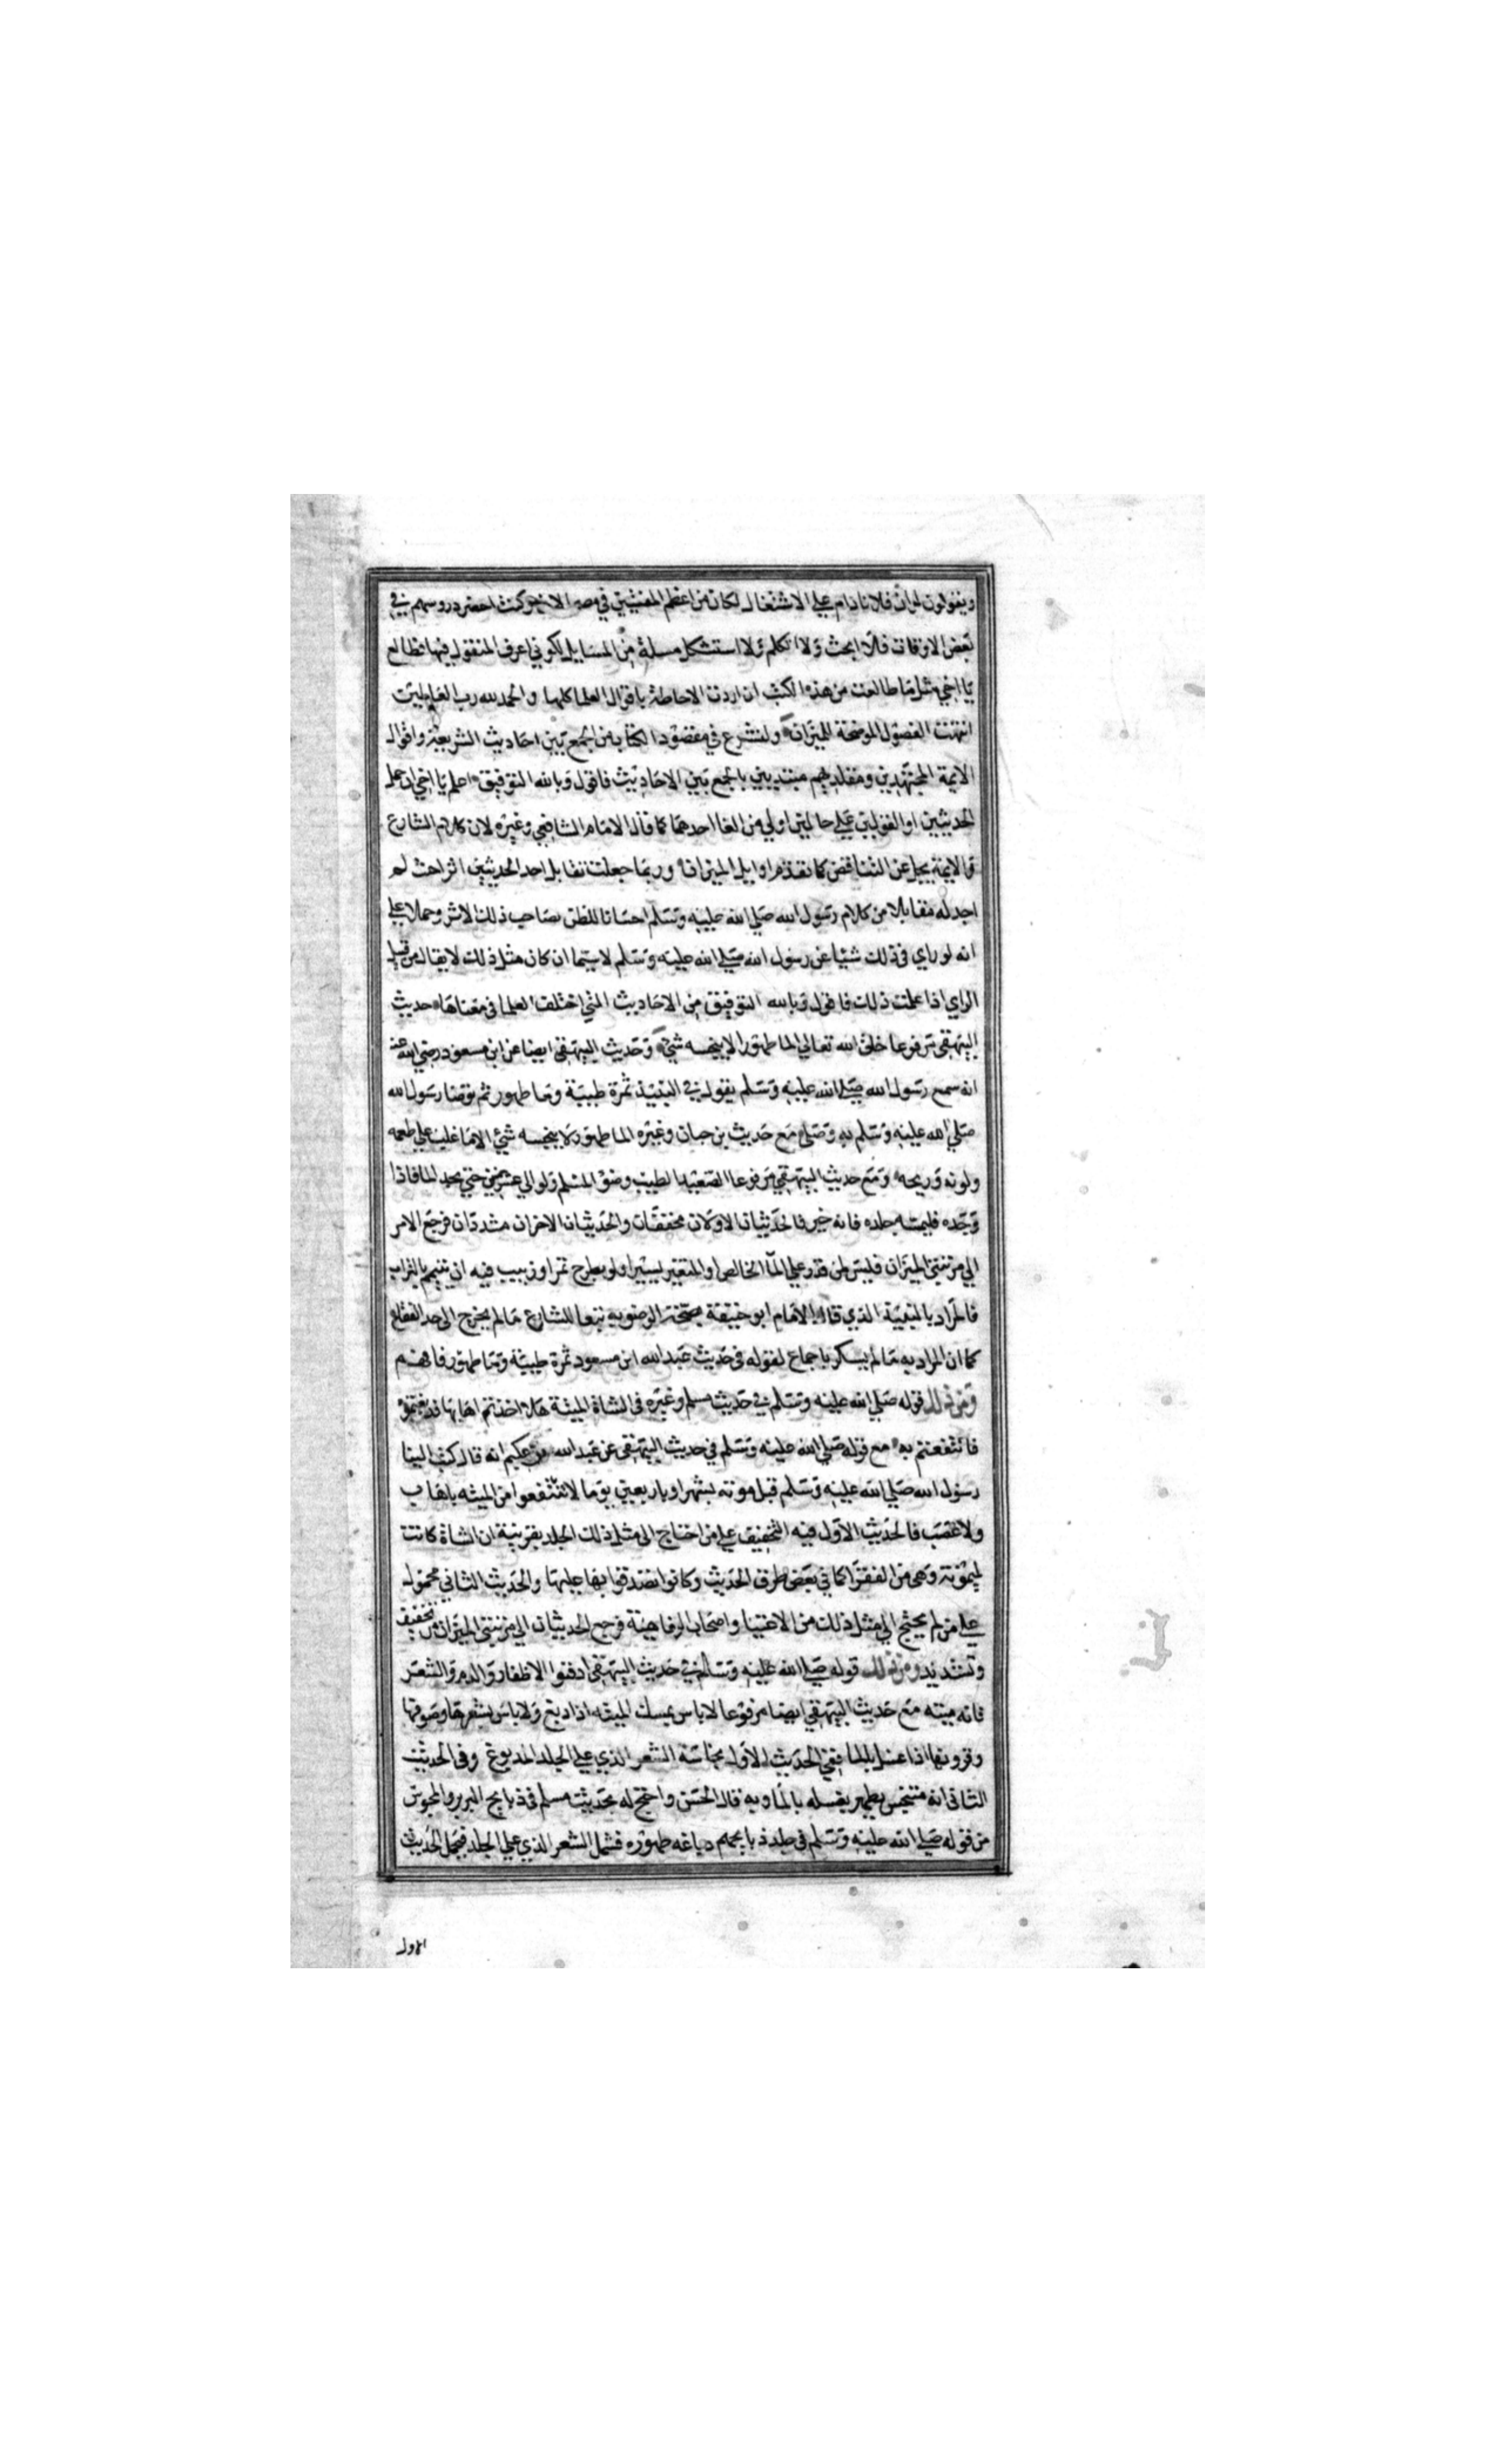 ويقولون لو ان فلانا دام علي الاشتغال لكان من اعظم المفتيين في مصر الان وكنت احضر دروسهم في
بعض الاوقات فلا ابحث ولا اتكلم ولا استشكل مسلة من المسايل لكوني اعرف المنقول فيها فطالع
يا اخي مثل ما طالعت من هذه الكتب ان اردت الاحاطة باقوال العلما كلها والحمد لله رب العالمين
انتهت الفصول الموضحة للميزان ولنشرع في مقصود الكتاب من الجمع بين احاديث الشريعة واقوال
الايمة المجتهدين ومقلديهم مبتديين بالجمع بين الاحاديث فاقول وبالله التوفيق اعلم يا اخي ان حمل
الحديثين او القولين علي حالين اولي من الغا احدهما كما قال الامام الشافعي وغيره لان كلام الشارع
والايمة يجل عن التناقض كما تقدم اوايل الميزان وربما جعلت تقابل احد الحديثين اثرا حيث لم
اجد له مقابلا من كلام رسول الله صلي الله عليه وسلم احسانا للظن بصاحب ذلك الاثر وحملا علي
انه لو راي في ذلك شيا عن رسول الله صلي الله عليه وسلم لاسيما ان كان مثل ذلك لا يقال من قبل
الراي اذا علمت ذلك فاقول وبالله التوفيق من الاحاديث التي اختلف العلما في معناها حديث
البيهقي مرفوعا خلق الله تعالي الما طهورا لا ينجسه شي وحديث البيهقي ايضا عن ابن مسعود رضي الله عنه
انه سمع رسول الله صلي الله عليه وسلم يقول في النبيذ ثمرة طيبة وما طهور ثم توضا رسول الله
صلي الله عليه وسلم به وصلي مع حديث بن حبان وغيره الما طهور لا ينجسه شي الا ما غلب علي طعمه
ولونه وريحه ومع حديث البيهقي مرفوعا الصعيد الطيب وضوء المسلم ولو الي عشر حجج حتي يجد الما فاذا
وجده فليمسه جلده فانه خير فالحديثان الاولان مخففان والحديثان الاخران مشددان فرجع الامر
الي مرتبتي الميزان فليس لمن قدر علي الما الخالص او المتغير يسيرا ولو بطرح تمر او زبيب فيه ان يتيمم بالتراب
فالمراد بالنبيذ الذي قال الامام ابو حنيفة بصحة الوضو به تبعا للشارع ما لم يخرج الي حد القطع
كما ان المراد به ما لم يسكر باجماع لقوله في حديث عبد الله ابن مسعود ثمرة طيبة وما طهور فافهم
ومن ذلك قوله صلي الله عليه وسلم في حديث مسلم وغيره في الشاة الميتة هلا اخذتم اهابها فدبغتموه
فانتفعتم به مع قوله صلي الله عليه وسلم في حديث البيهقي عن عبد الله بن عكيم انه قال كتب الينا
رسول الله صلي الله عليه وسلم قبل موته بشهر او باربعين يوما لا تنتفعوا من الميته باهاب
ولا عصب فالحديث الاول فيه التخفيف علي من احتاج الي مثل ذلك الجلد بقرينة ان الشاة كانت
لميمونة وهي من الفقرا كما في بعض طرق الحديث وكانوا تصدقوا بها عليها والحديث الثاني محمول
علي من لم يحتج الي مثل ذلك من الاغنيا واصحاب الرفاهية فرجع الحديثان الي مرتبتي الميزان من تخفيف
وتشديد ومن ذلك قوله صلي الله عليه وسلم في حديث البيهقي ادفنوا الاظفار والدم والشعر
فانه ميته مع حديث البيهقي ايضا مرفوعا لا باس بمسك الميته اذا دبغ ولا باس بشعرها وصوفها
وقرونها اذا غسل بالما ففي الحديث الاول نجاسة الشعر الذي علي الجلد المدبوغ وفي الحديث
الثاني انه متنجس يطهر بغسله بالما وبه قال الحسن واحتج له بحديث مسلم في ذبايح البربر والمجوس
من قوله صلي الله عليه وسلم في جلد ذبايحهم دباغه طهوره فشمل الشعر الذي علي الجلد فيحمل الحديث
الاول